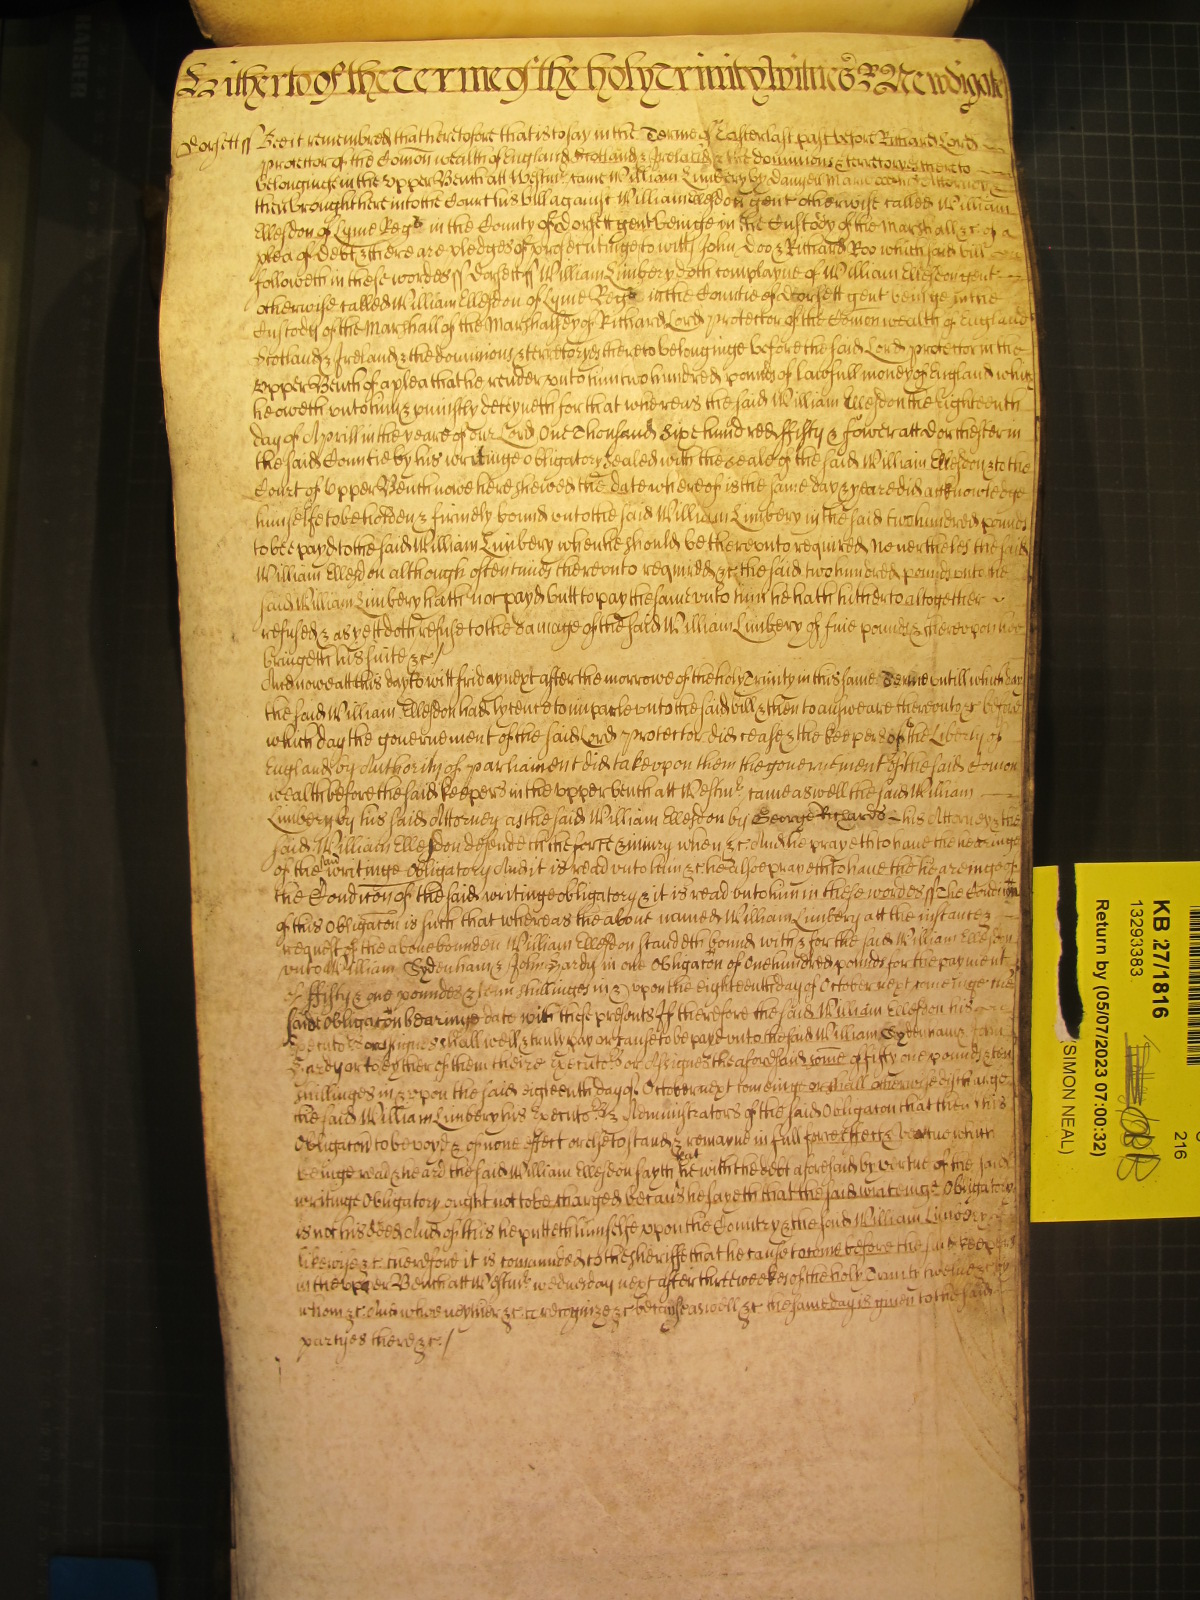 Hitherto of the Terme of the holy Trinity Witnes R Newdigate
Dorsett ss Bee it remembred that heretofore that is to say in the Terme of Easter last past before Richard Lord
Protector of the Comon wealth of England Scotland & Ireland & the dominions & territoryes thereto
belonginge in the upper Bench att Westmr came William Limbery by Attorney &
then brought here into the Court his bill against William Ellesdon gent otherwise called William
Ellesdon of Lyme Regs in the County of dorsett gent beinge in the Custody of the Marshall &c of a
plea of debt & there are pledges of prosecutinge to witt John Doo & Richard Roo which said bill
followeth in these wordes ss Dorsett ss William Limbery doth complayne of William Ellesdon gent
otherwise called William Ellesdon of Lyme Regs in the Countie of dorsett gent beinge in the
Custody of the Marshall of the Marshalsey of Richard Lord Protector of the Comon wealth of England
Scotland & Ireland & the dominions & terretoryes thereto belonginge before the said Lord Protector in the
upper Bench of a plea that he render unto him two hundred pounds of lawfull money of England which
he oweth unto him & uniustly deteyneth for that whereas the said William Ellesdon the Eighteenth
day of Aprill in the yeare of our Lord One Thousand Sixe hundred ffifty & fower att dorchester in
the said Countie by his writinge obligatory Sealed with the seale of the said William Ellesdon & to the
Court of Upper Bench nowe here shewed the date whereof is the same day & yeare did acknowledge
himselfe to be holden & firmely bound unto the said William Limbery in the said two hundred pounds
to bee payd to the said William Limbery when he should be thereunto required Neverthelesse the said
William Ellesdon although oftentimes thereunto required &c the said two hundred pounds unto the
said William Limbery hath not payd butt to pay the same unto him he hath hitherto altogether
refused & as yett doth refuse to the damage of the said William Limbery of five pounds & thereupon hee
bringeth his suite &c /
And nowe att this day to witt friday next after the morrowe of the holy Trinity in this same Terme untill which day
the said William Ellesdon had lycence to imparle unto the said bill & then to answeare thereunto &c before
which day the governement of the said Lord Protector did cease & the keepers of the Liberty of
England by Authority of parliament did take upon them the governement of the said Comon
wealth before the said keepers in the upper bench att Westmr came aswell the said William
Limbery by his said Attorney as the said William Ellesdon by George Richards his Attorney & the
said William Ellesdon defendeth the force & iniury when &c And he prayeth to have the hearinge
of the said writinge obligatory And it is read unto him &c he alsoe prayeth to have the heareinge of
the Condition of the said writinge obligatory & it is read unto him in these wordes ss The Condicon
of this Obligacon is such that whereas the above named William Limbery att the instance &
request of the above bounden William Ellesdon standeth bound with & for the said William Ellesdon
unto William Sydenham & John Hardy in one Obligacon of One hundred pounds for the payment
of ffifty & one poundes & tenn shillinges in & upon the eighteenth day of October next comeinge the
said Obligacon bearinge date with these presents If therefore the said William Ellesdon his
Executors or assignes shall well & truly pay or cause to be payd unto the said William Sydenham & John
Hardy or to eyther of them theire Executors or Assignes the aforesaid some of fifty one pounds & ten
shillinges in & upon the said eighteenth day of October next comeinge or shall otherwise discharge
the said William Limbery his Executors & Administrators of the said Obligacon that then this
Obligacon to be voyd & of none effect or else to stand & remayne in full force effect & vertue which
beinge read & heard the said William Ellesdon sayth that he with the debt aforesaid by vertue of the said
writinge Obligatory ought not to be charged because he sayeth that the said writeinge Obligatory
is not his deed And of this he putteth himselfe upon the Country & the said William Limbery
likewise &c therefore it is comanded to the sheriffe that he cause to come before the said keepers
in the upper Bench att Westmr wednesday next after three weekes of the holy Trinity twelve &c by
whom &c And who neyther &c to recognize &c because aswell &c the same day is given to the said
partyes there &c /
KB 27/1816
13293383
Return by (05/07/2023 07:00:32)
(SIMON NEAL)
216